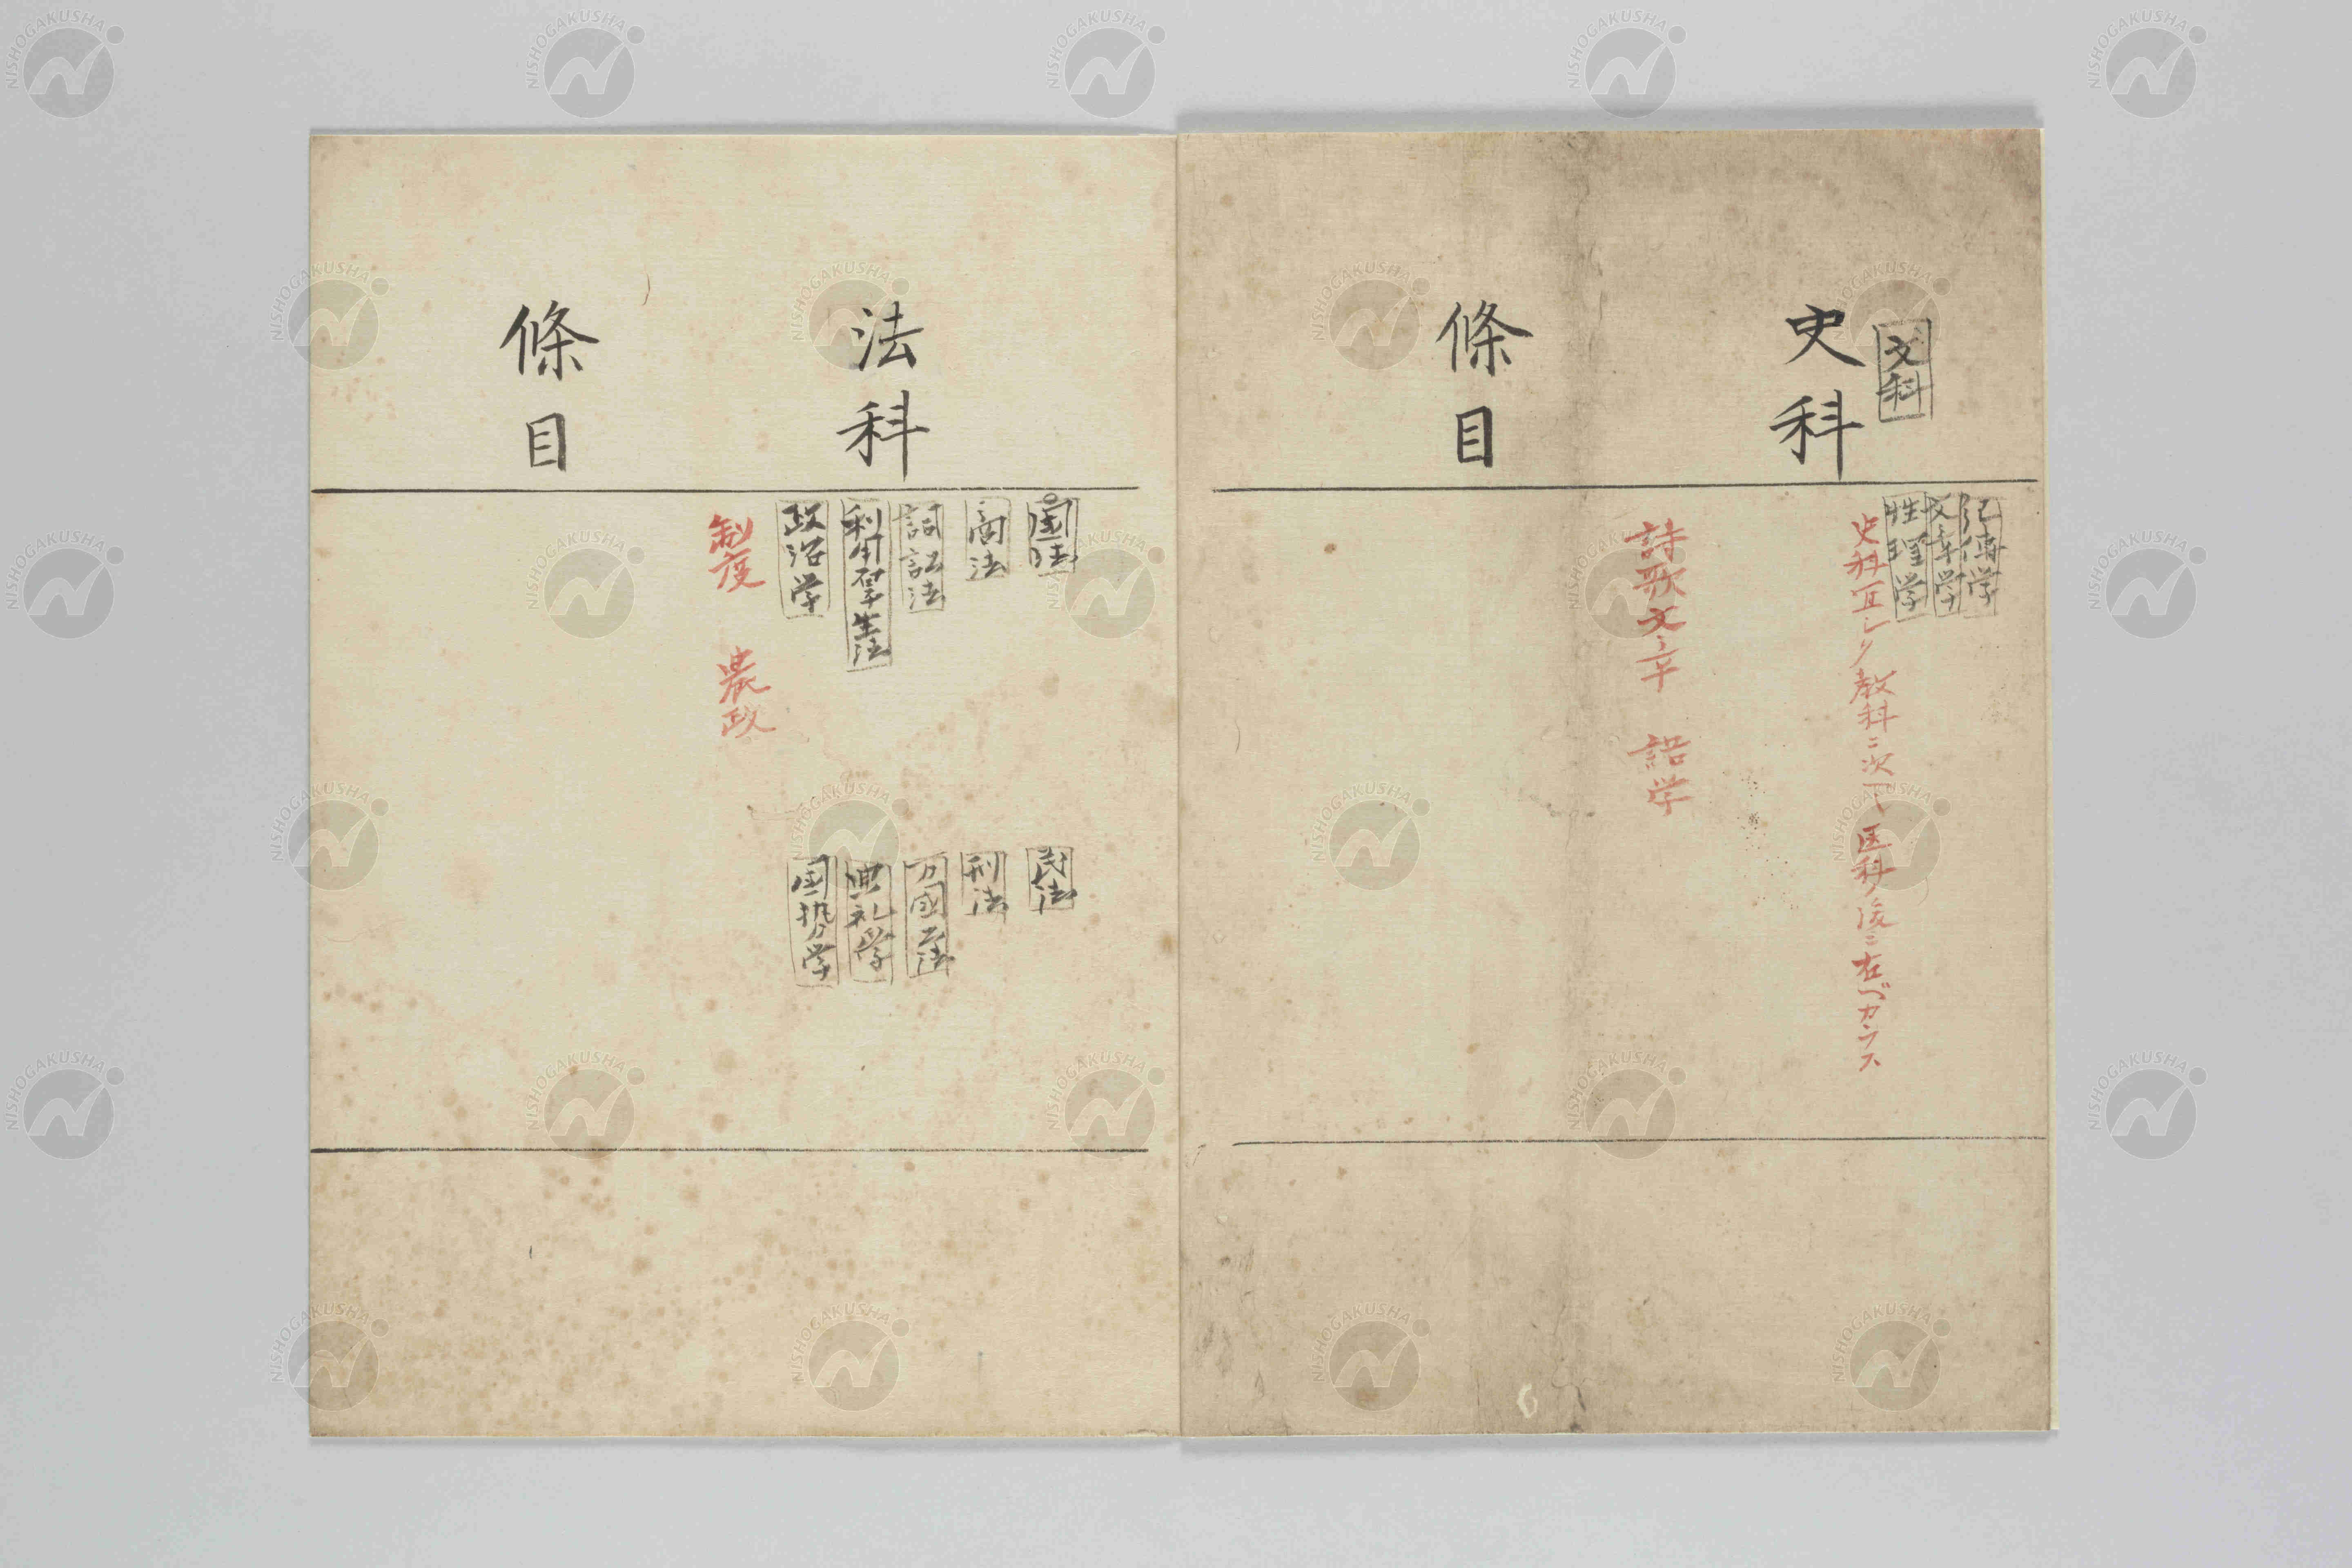 文科
史科
條目
紀傳学
文章学
性理学
史科宜シク教科ニ次テ医科ノ後ニ在ベカラス
詩歌文章 語学
法科
條目
国法 民法
商法 刑法
詞訟法 万國公法
利用厚生法 典礼学
政治学 国勢学
制度 農政
NISHOGAKUSHA